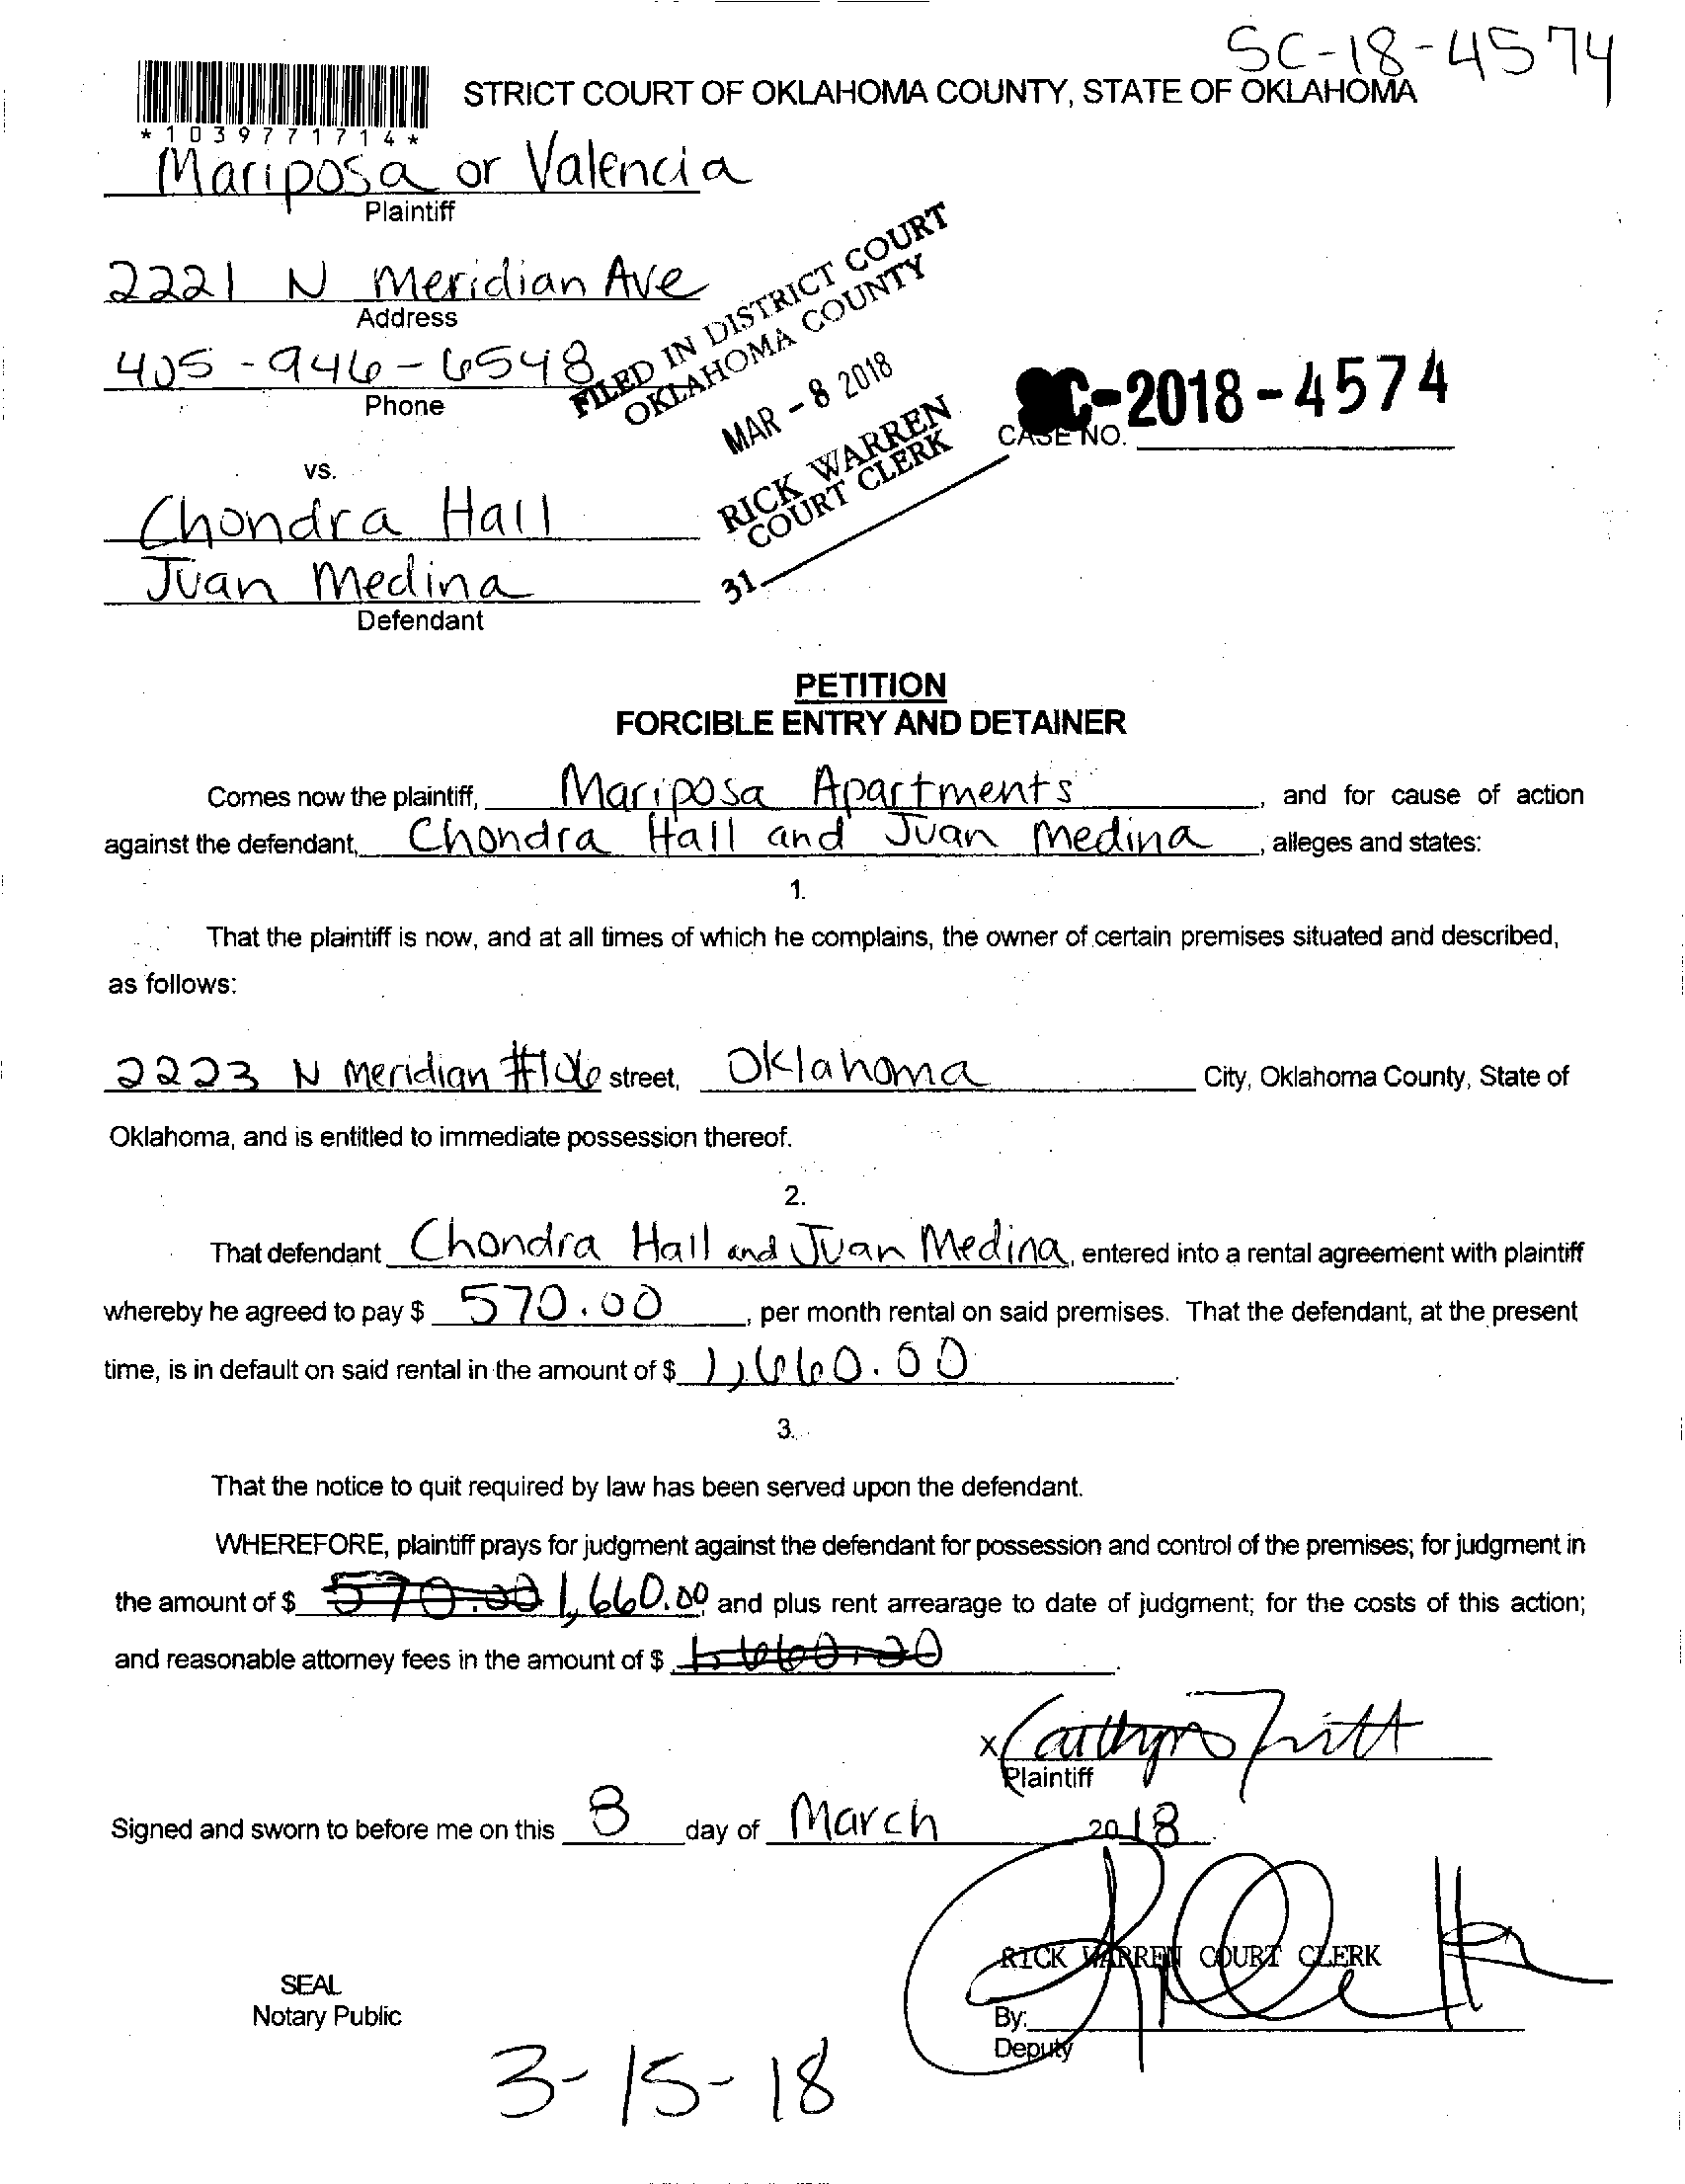 SC-18-4574
STRICT COURT OF OKLAHOMA COUNTY, STATE OF OKLAHOMA
*1039771714*
Mariposa or Valencia
Plaintiff
2221 N Meridian Ave
Address
405-946-6548
Phone
FILED IN DISTRICT COURT
OKLAHOMA COUNTY
MAR - 8 2018
RICK WARREN
COURT CLERK
31
SC-2018-4574
CASE NO.
vs.
Chondra Hall
Juan Medina
Defendant
PETITION
FORCIBLE ENTRY AND DETAINER
Comes now the plaintiff, Mariposa Apartments, and for cause of action
against the defendant, Chondra Hall and Juan Medina, alleges and states:
1.
That the plaintiff is now, and at all times of which he complains, the owner of certain premises situated and described,
as follows:
2223 N Meridian street, Oklahoma City, Oklahoma County, State of
Oklahoma, and is entitled to immediate possession thereof.
2.
That defendant Chondra Hall and Juan Medina, entered into a rental agreement with plaintiff
whereby he agreed to pay $ 570.00, per month rental on said premises. That the defendant, at the present
time, is in default on said rental in the amount of $ 1,660.00
3.
That the notice to quit required by law has been served upon the defendant.
WHEREFORE, plaintiff prays for judgment against the defendant for possession and control of the premises; for judgment in
the amount of $ 570.00 1,660.00, and plus rent arrearage to date of judgment; for the costs of this action;
and reasonable attorney fees in the amount of $ 1,660.00.
x
Plaintiff
Signed and sworn to before me on this 8 day of March 2018.
RICK WARREN COURT CLERK
SEAL
Notary Public
By:
Deputy
3-15-18